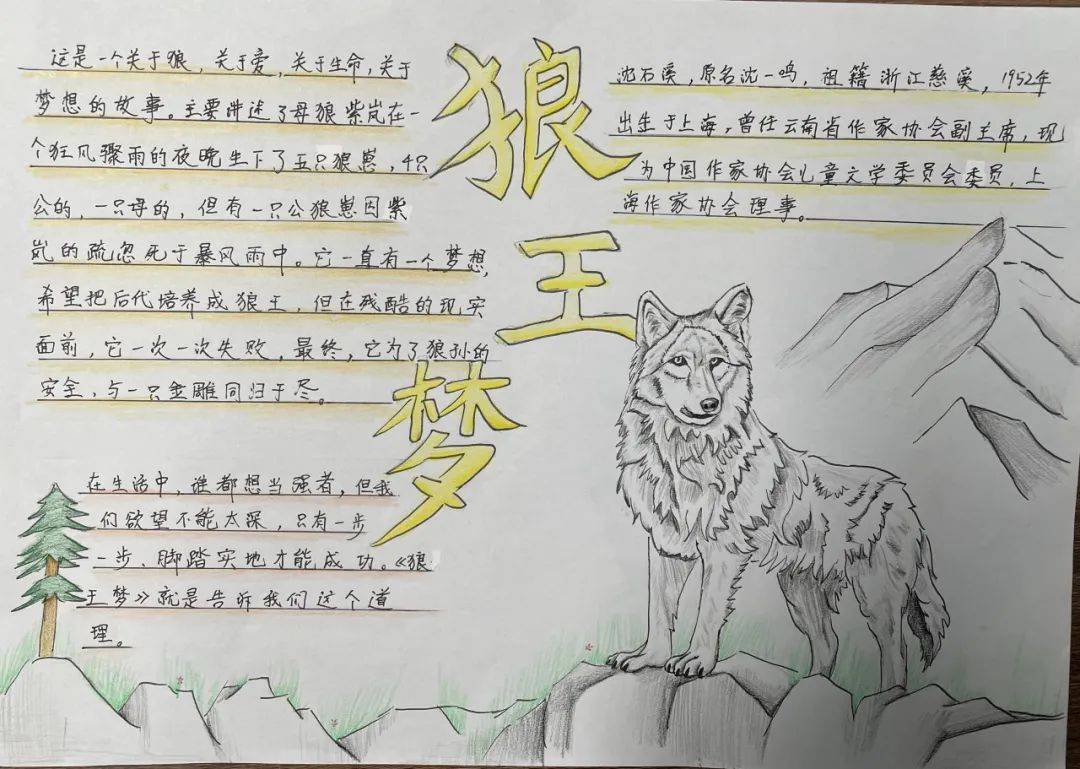 狼王梦
这是一个关于狼，关于爱，关于生命，关于
梦想的故事。主要讲述了母狼紫岚在一
个狂风骤雨的夜晚生下了五只狼崽，4只
公的，一只母的，但有一只公狼崽因紫
岚的疏忽死于暴风雨中。它一直有一个梦想，
希望把后代培养成狼王，但在残酷的现实
面前，它一次一次失败，最终，它为了狼孙的
安全，与一只金雕同归于尽。
沈石溪，原名沈一鸣，祖籍浙江慈溪，1952年
出生于上海，曾任云南省作家协会副主席，现
为中国作家协会儿童文学委员会委员，上
海作家协会理事。
在生活中，谁都想当强者，但我
们欲望不能太深，只有一步
一步、脚踏实地才能成功。《狼
王梦》就是告诉我们这个道
理。